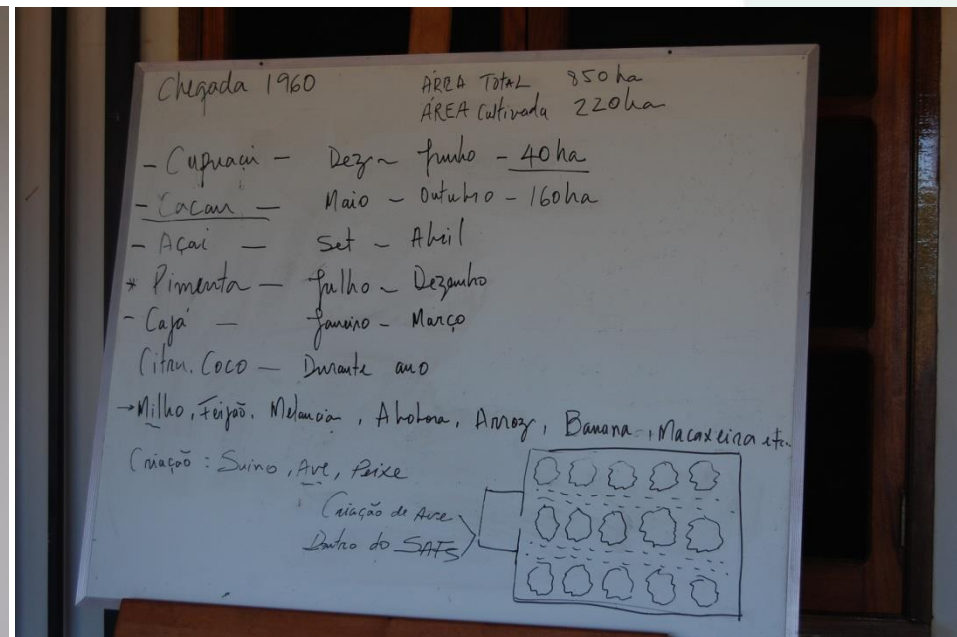 Chegada 1960
ÁREA TOTAL 850 ha
ÁREA Cultivada 220 ha
- Cupuaçu - Dez ~ Junho - 40 ha
- Cacau - Maio ~ Outubro - 160 ha
- Açaí — Set ~ Abril
* Pimenta — Julho ~ Dezembro
- Cajá — Janeiro ~ Março
Citru. Coco — Durante ano
→ Milho, Feijão, Melancia, Abobora, Arroz, Banana, Macaxeira etc.
Criação: Suino, Ave, Peixe
Criação de Ave
Dentro do SAFs